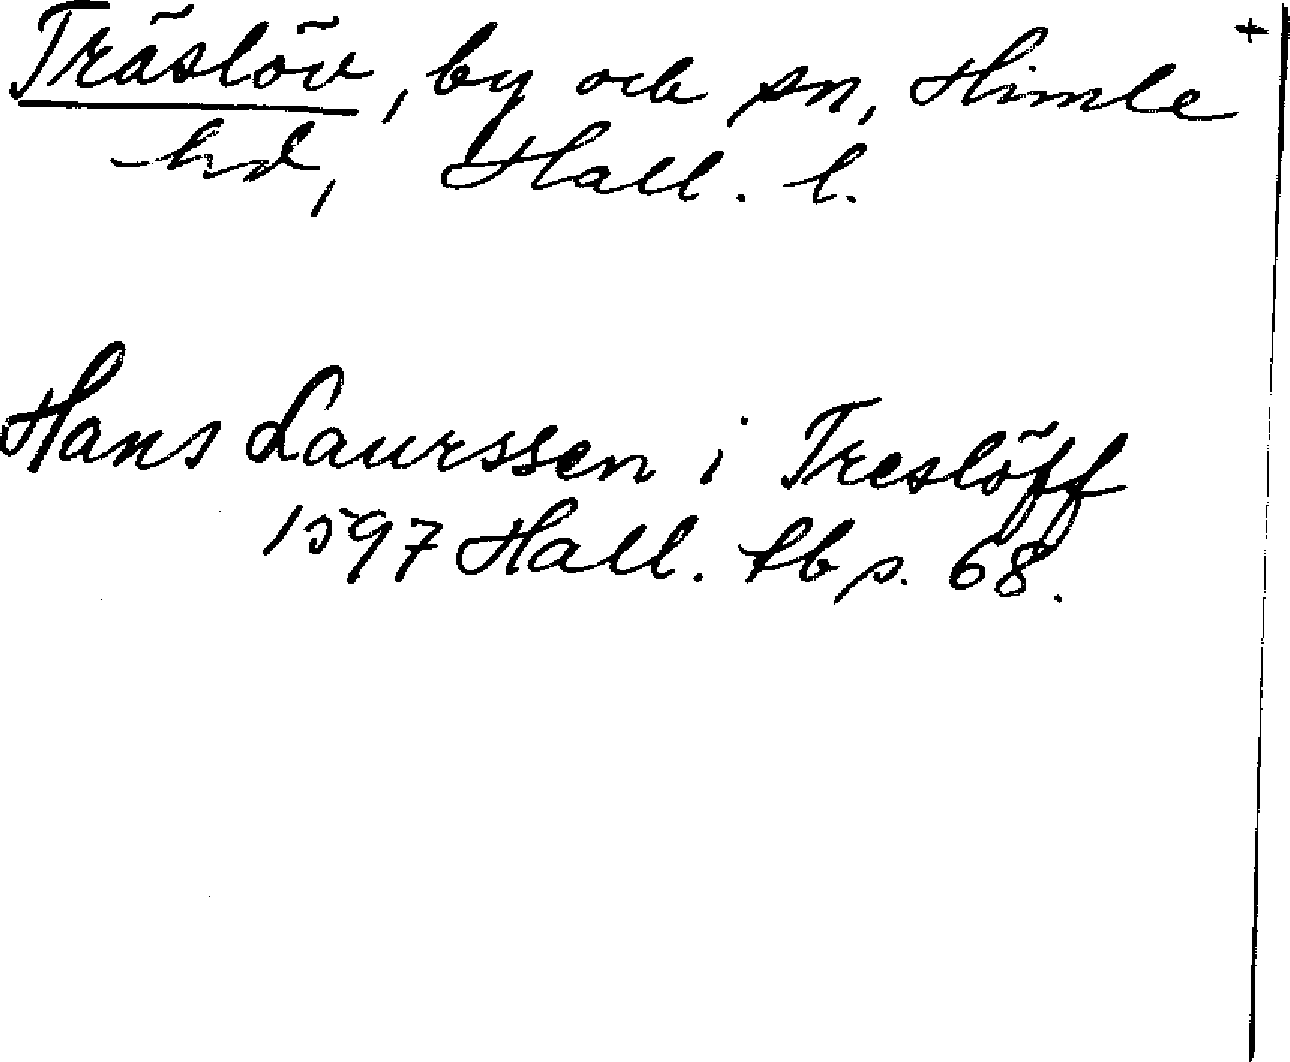 Träslöv, by och sn, Himle +
hd, Hall. l.
Hans Laurssen i Treslöff
1597 Hall. tb s. 68.